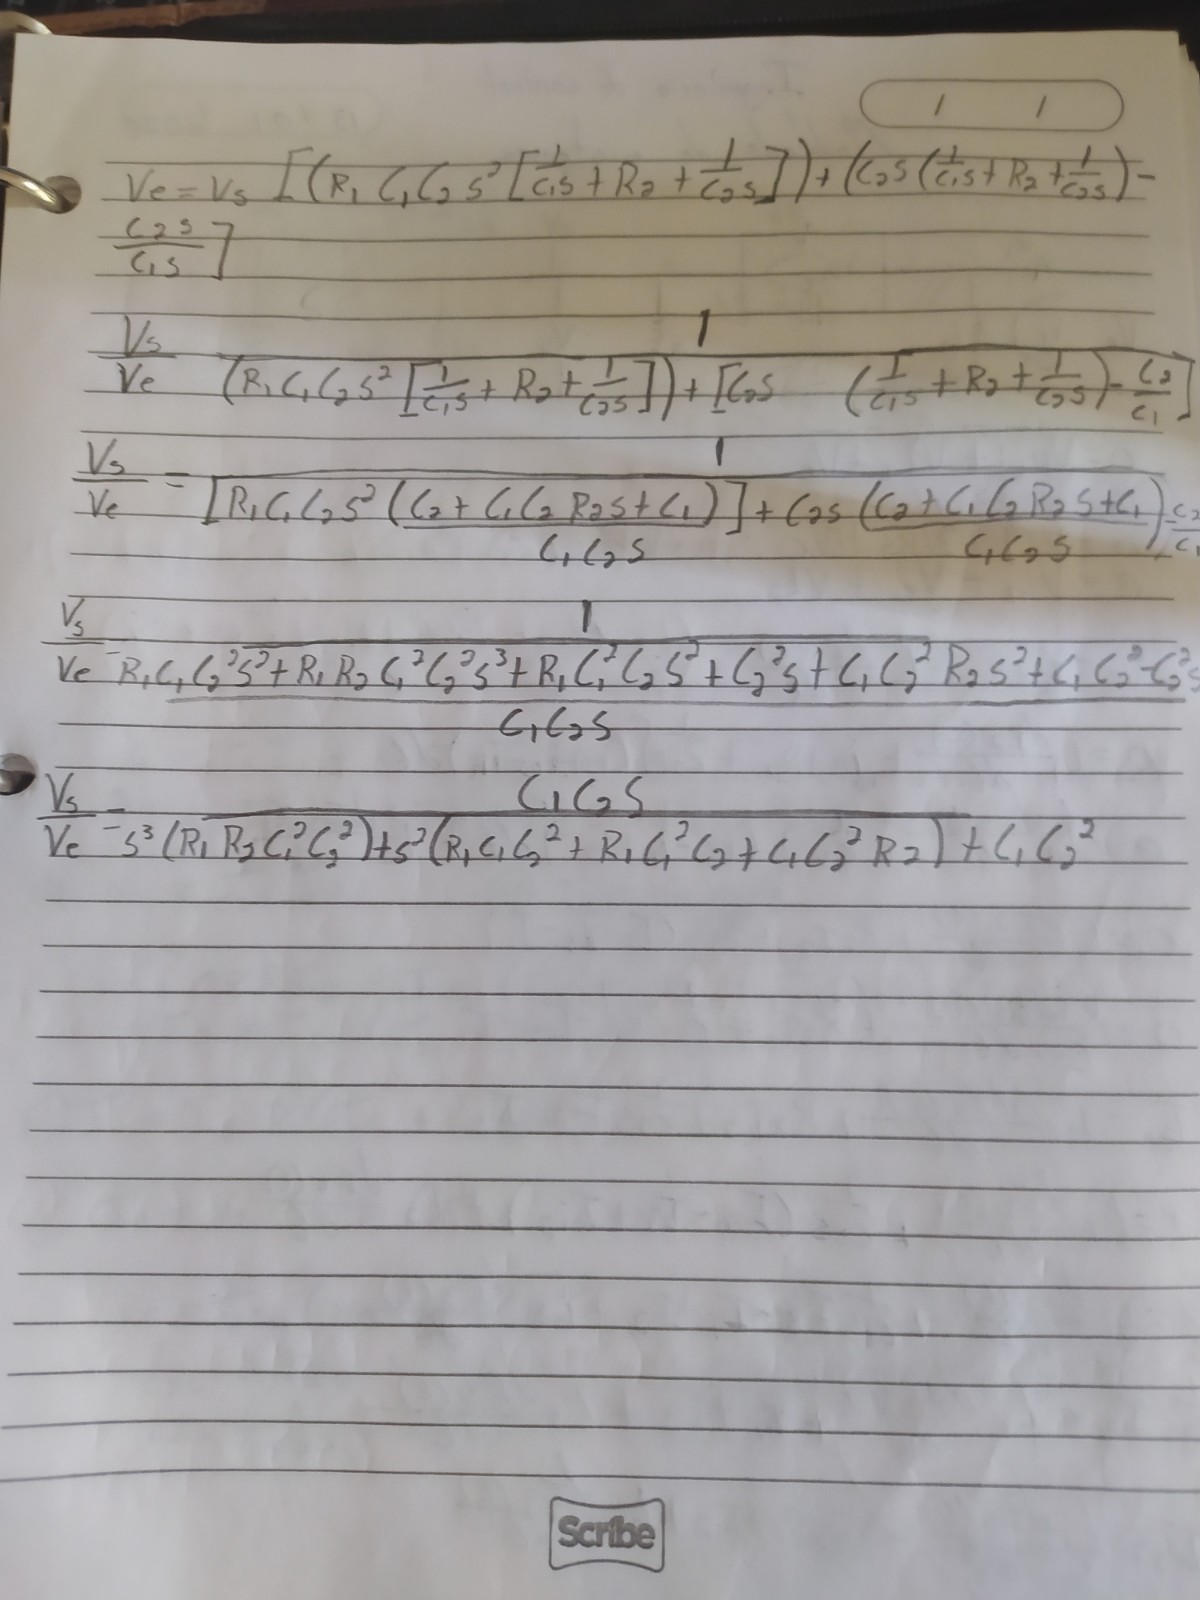 / /
Ve = Vs [(R₁ C₁ C₂ s² [1/C₁s + R₂ + 1/C₂s]) + (C₂s (1/C₁s + R₂ + 1/C₂s) -
C₂s/C₁s ]
Vs/Ve 1/(R₁C₁C₂s² [1/C₁s + R₂ + 1/C₂s]) + [C₂s (1/C₁s + R₂ + 1/C₂s) - C₂/C₁]
Vs/Ve = 1/[R₁C₁C₂s² (C₂ + C₁C₂R₂s + C₁)/C₁C₂s] + C₂s (C₂ + C₁C₂R₂s + C₁)/C₁C₂s - C₂/C₁
Vs/Ve = 1/(R₁C₁C₂²s² + R₁R₂C₁²C₂²s³ + R₁C₁²C₂s² + C₂²s + C₁C₂²R₂s² + C₁C₂² - C₂²s)/C₁C₂s
Vs/Ve = C₁C₂s/s³(R₁R₂C₁²C₂²) + s²(R₁C₁C₂² + R₁C₁²C₂ + C₁C₂²R₂) + C₁C₂²
Scribe